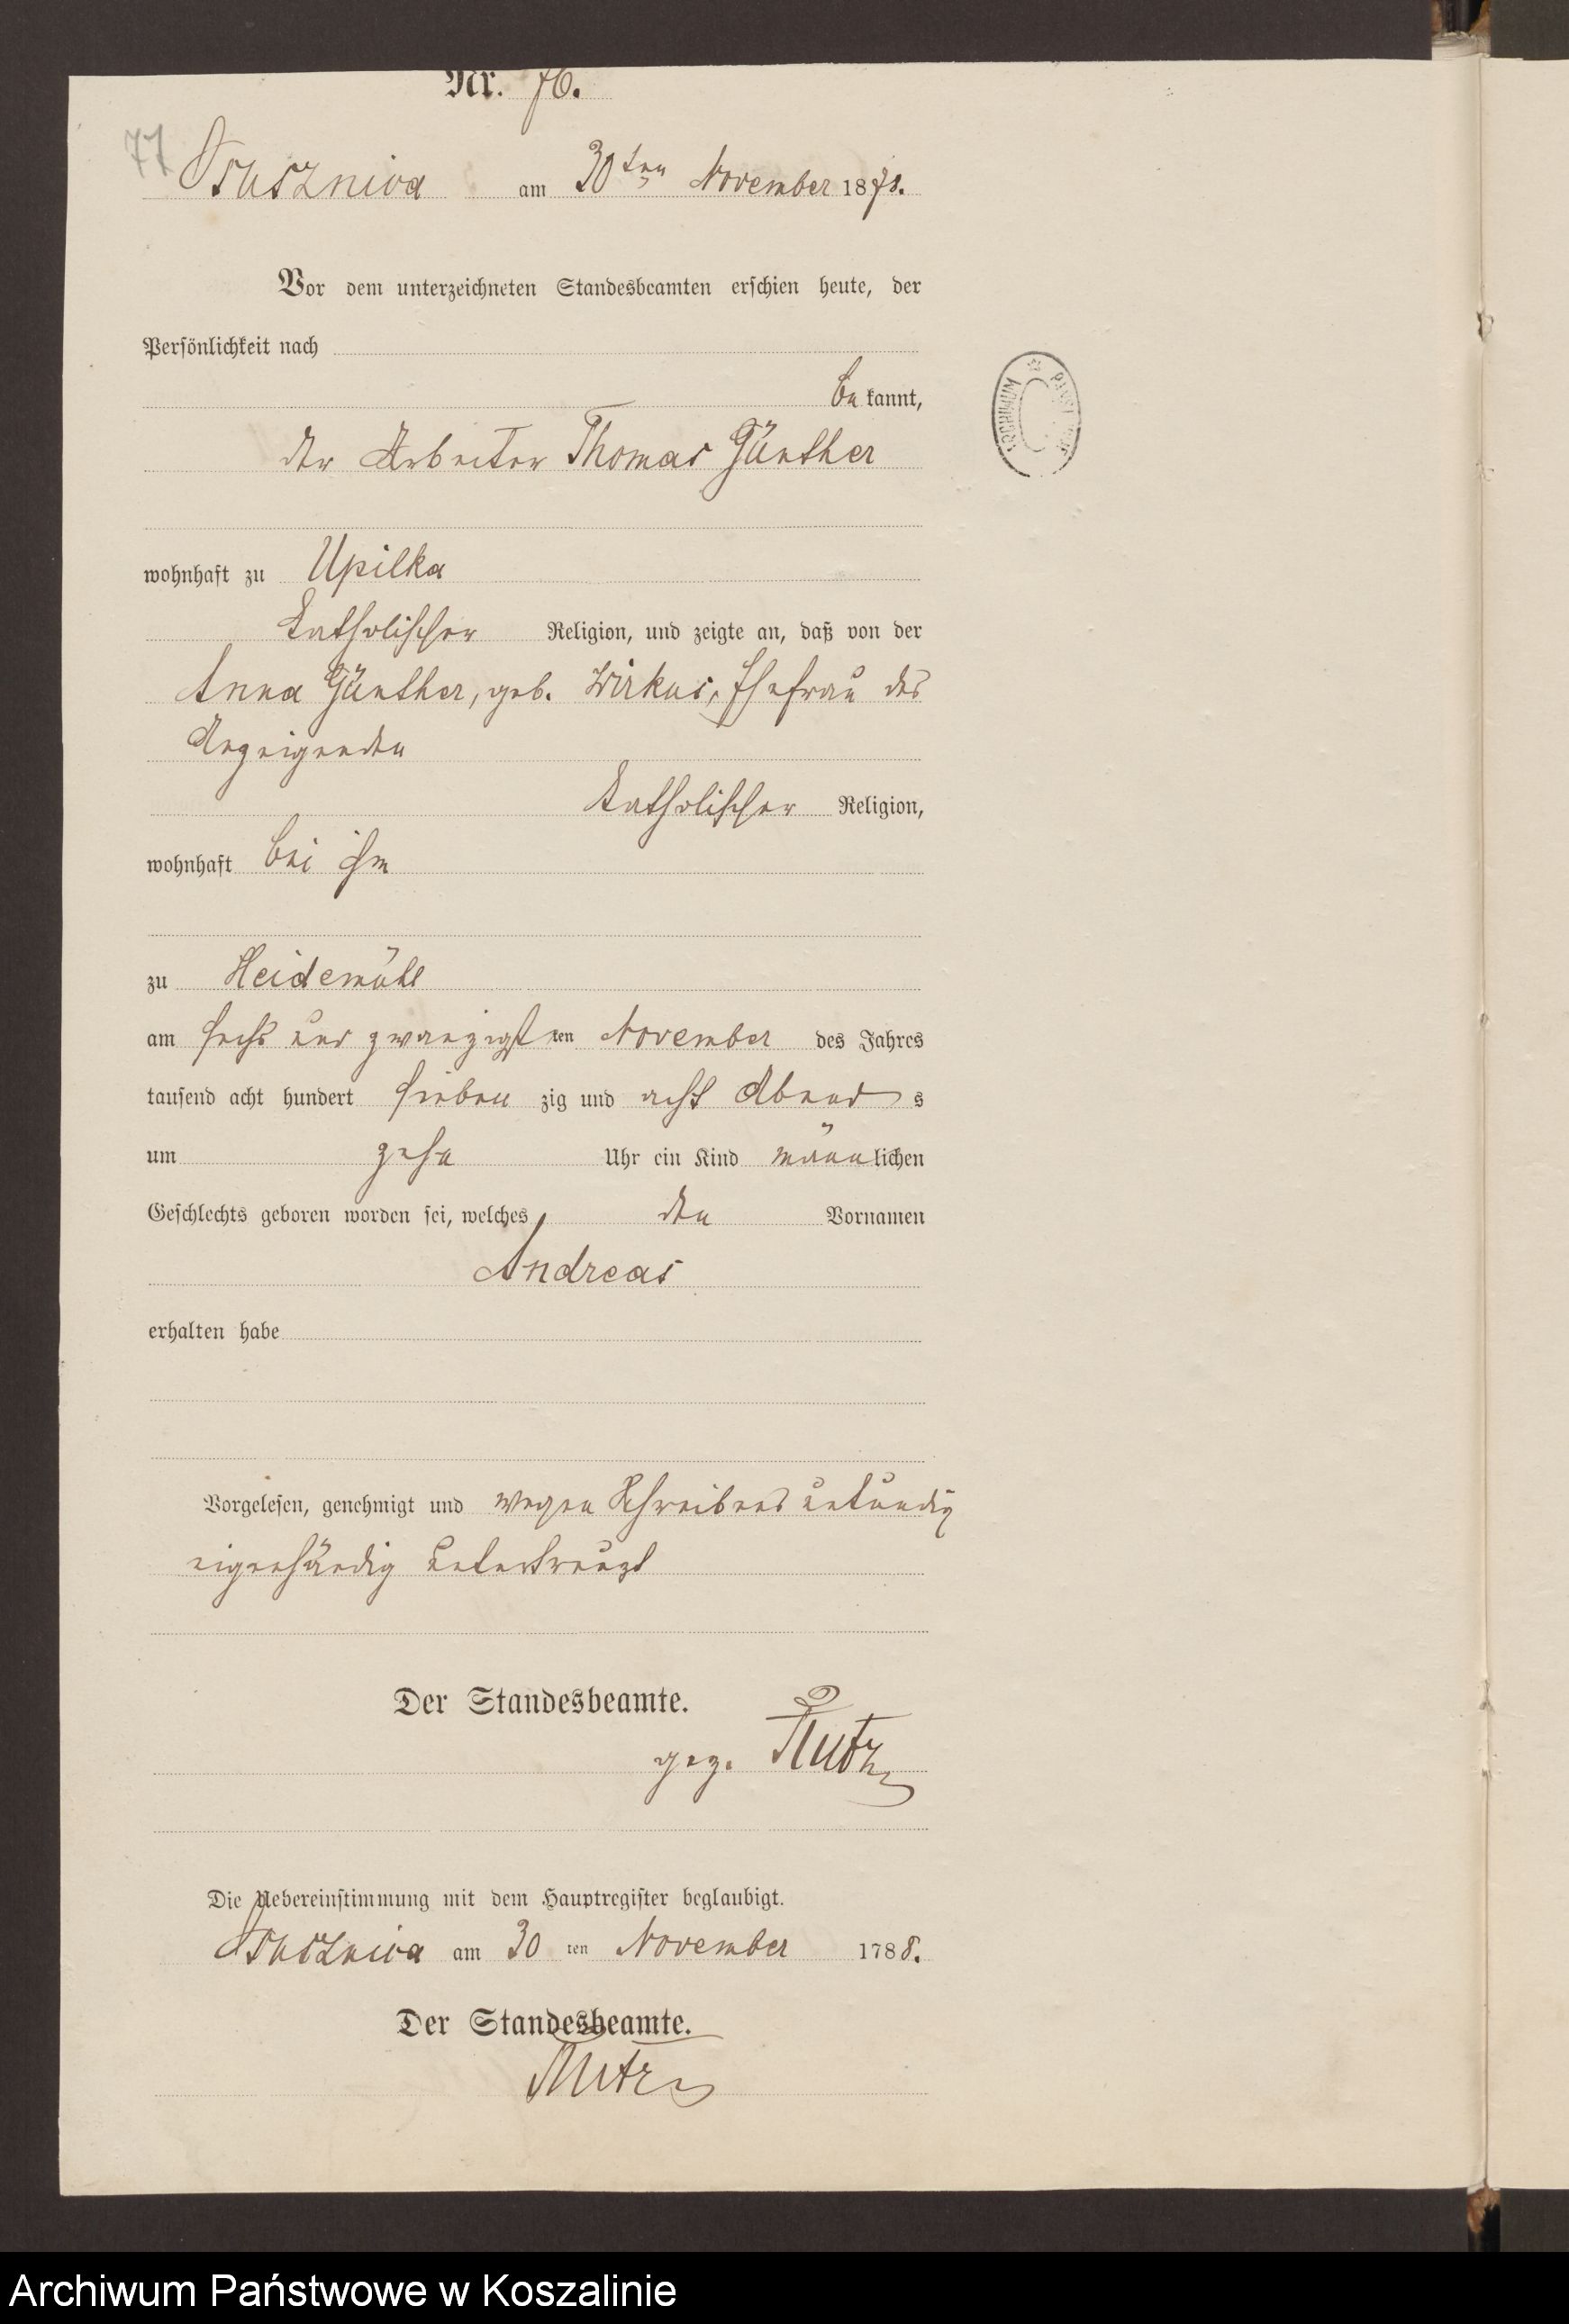 Nr. 76.
77
Osusznica am 30ten November 1878.
Vor dem unterzeichneten Standesbeamten erschien heute, der
Persönlichkeit nach
be kannt,
der Arbeiter Thomas Günther
wohnhaft zu Upilka
katholischer Religion, und zeigte an, daß von der
Anna Günther, geb. Wirkus, Ehefrau des
Anzeigenden
katholischer Religion,
wohnhaft bei ihm
zu Heidemühl
am sechs und zwanzigsten November des Jahres
tausend acht hundert sieben zig und acht Abend s
um zehn Uhr ein Kind männlichen
Geschlechts geboren worden sei, welches den Vornamen
Andreas
erhalten habe
Vorgelesen, genehmigt und wegen Schreibens unkundig
eigenhändig unterkreuzt
Der Standesbeamte.
gez.
Die Uebereinstimmung mit dem Hauptregister beglaubigt.
Osusznica am 30 ten November 1788.
Der Standesbeamte.
ARCHIWUM
Archiwum Państwowe w Koszalinie